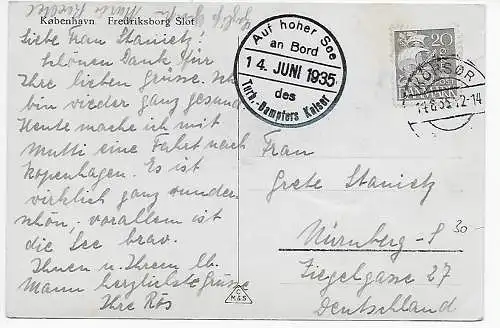 København   Fredriksborg Slot
Liebe Frau Stanietz!
Schönen Dank für
Ihre lieben Grüsse. Ich
bin wieder ganz gesund.
Heute mache ich mit
Mutti eine Fahrt nach
Kopenhagen. Es ist
wirklich ganz wunder
schön. vorallem ist
die See brav.
Ihnen u. Ihrem lb.
Mann herzlichste Grüsse
Ihre Rös
Auf hoher See
an Bord
14. JUNI 1935
des
Turb.-Dampfers Kaiser
20
DANMARK
KORSØR
12-14
Frau
Grete Stanietz
Nürnberg-S
30-
Ziegelgasse 27
Deutschland
M&S